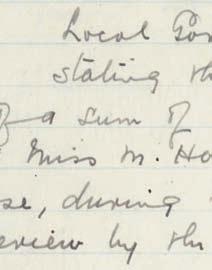 Local Gov
stating th
of a sum of
Miss M. Ho
se, during
erview by th